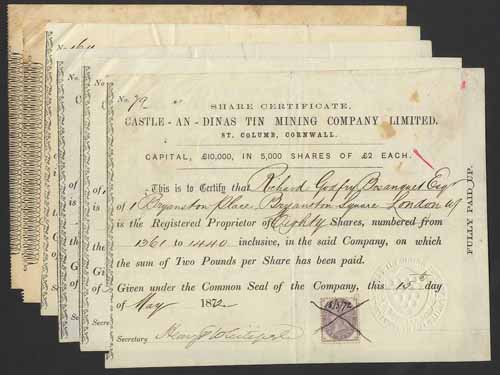 No. 72
SHARE CERTIFICATE.
CASTLE - AN - DINAS TIN MINING COMPANY LIMITED.
ST. COLUMB, CORNWALL.
CAPITAL, £10,000, IN 5,000 SHARES OF £2 EACH.
This is to Certify that Richard Godfry Bosanquet Esqr
of 1 Bryanston Place Bryanston Square London W
is the Registered Proprietor of Eighty Shares, numbered from
1361 to 1440 inclusive, in the said Company, on which
the sum of Two Pounds per Share has been paid.
Given under the Common Seal of the Company, this 15th day
of May 1872
Secretary
15/5/72
FULLY PAID UP.
No.
No.
No.
of
is
the
Given
of
Secre